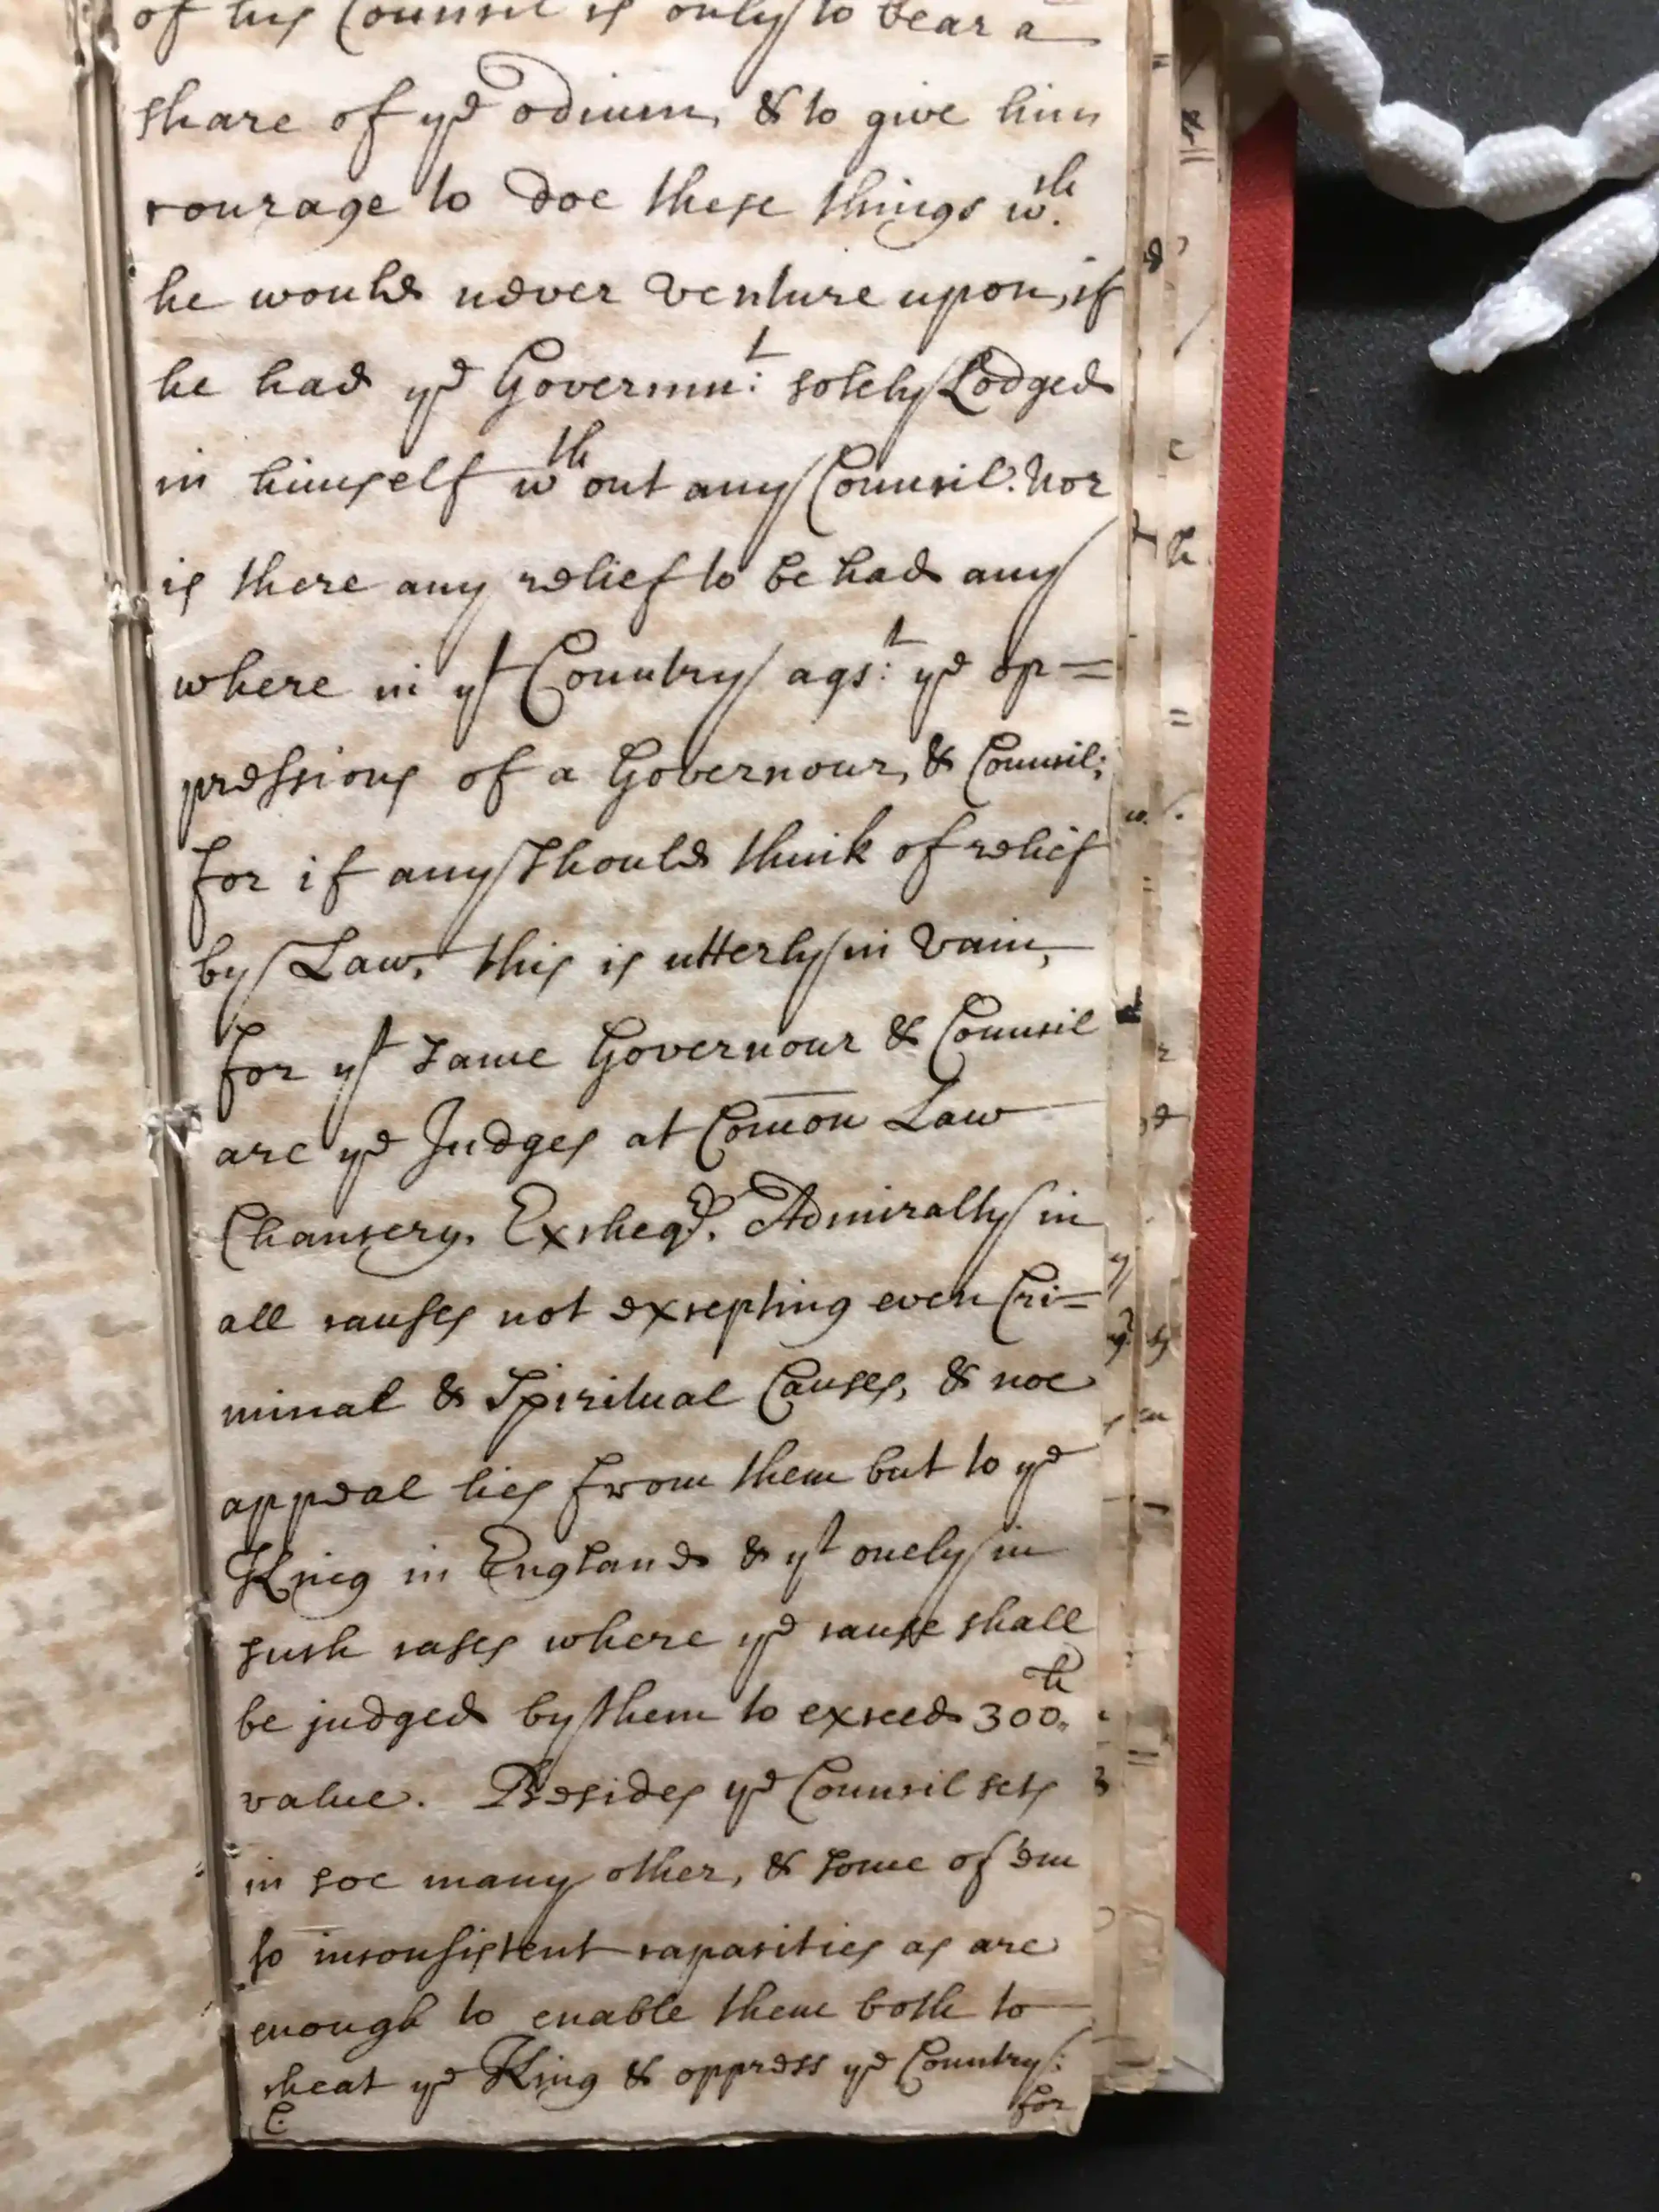 of his Councel is only to bear a
share of ye odium, & to give him
courage to doe these things wch.
he would never venture upon, if
he had ye Governmt: solely Lodged
in himself wthout any Council. Nor
is there any relief to be had any
where in yt Country agst: ye op=
pressions of a Governour, & Council;
for if any should think of relief
by Law, this is utterly in vain,
for yt same Governour & Council
are ye Judges at Com̄on Law
Chancery, Excheqr. Admiralty in
all causes not excepting even Cri=
minal & Spiritual Causes, & noe
appeal lies from them but to ye
King in England & yt onely in
such cases where ye cause shall
be judged by them to exceed 300li.
value. Besides ye Council sets
in soe many other, & some of 'em
so inconsistent capacities as are
enough to enable them both to
cheat ye King & oppress ye Country:
C. for